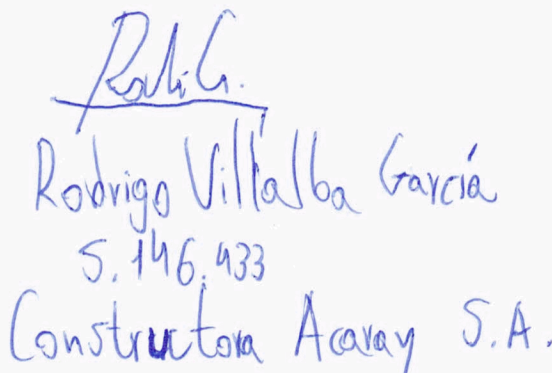 Rodrigo Villalba García
5.146.433
Constructora Acaray S.A.